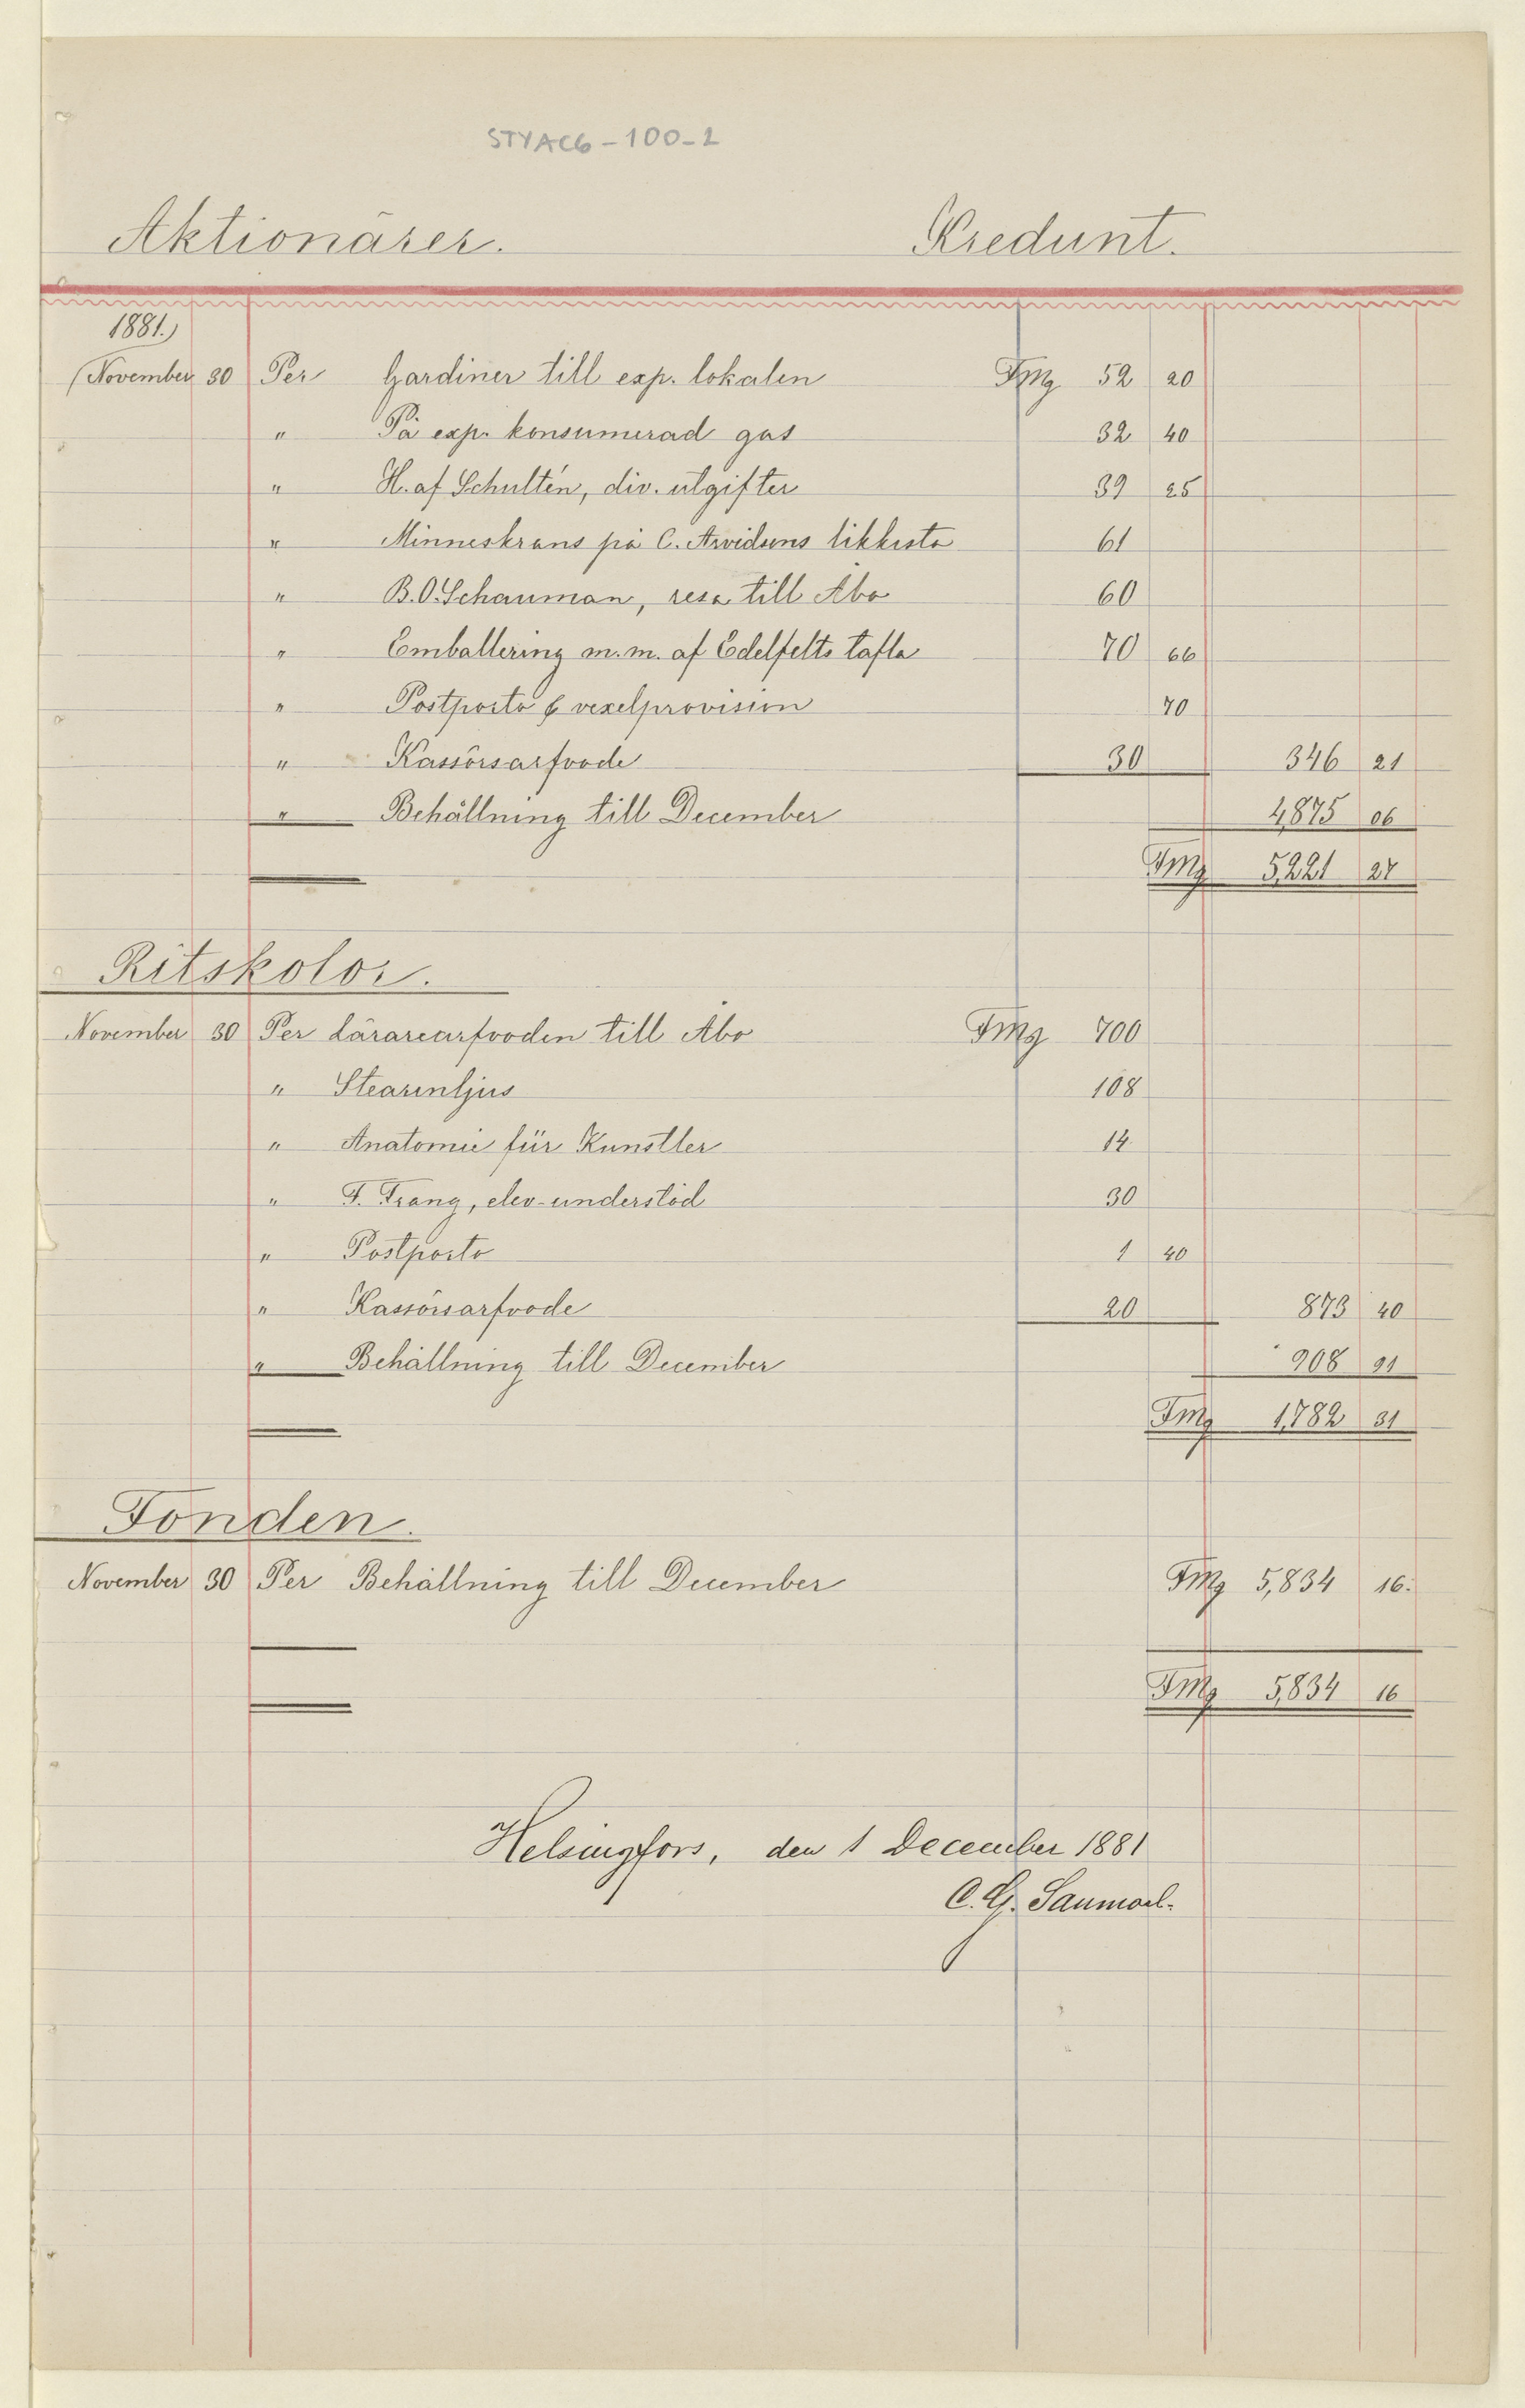 STYAC6-100-2
Aktionärer. Kredunt.
1881.)
November 30 Per Gardiner till exp. lokalen Fmg 52 20
" På exp. konsumerad gas 32 40
" H. af Schultén, div. utgifter 39 25
" Minneskrans på C. Arvidsons likkista 61
" B. O. Schauman, resa till Åbo 60
" Emballering m. m. af Edelfelts tafla 70 66
" Postporto & vexelprovision 70
" Kassörsarfvode 30 346 21
" Behållning till December 4875 06
Fmg 5,221 27
Ritskolor.
November 30 Per Lärarearfvoden till Åbo Fmg 700
" Stearinljus 108
" Anatomie für Kunstler 14
" F. Frang, elev-understöd 30
" Postporto 1 40
" Kassörsarfvode 20 873 40
" Behållning till December 908 91
Fmg 1,782 31
Fonden.
November 30 Per Behållning till December Fmg 5,834 16.
Fmg 5,834 16
Helsingfors, den 1 December 1881
C. G. Sanmark.